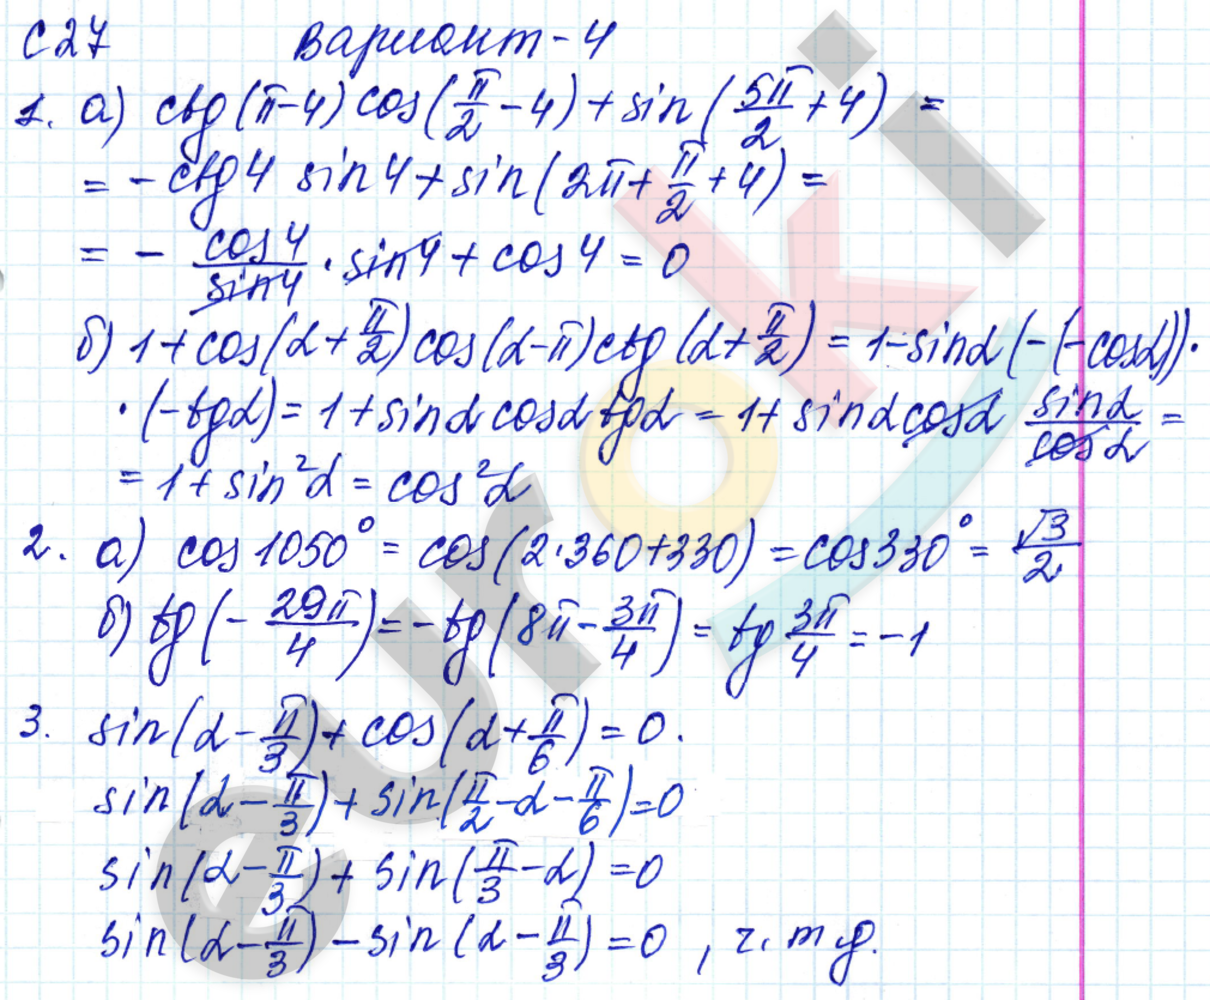 С 27 Вариант - 4
1. а) ctg(π-4) cos(π/2 - 4) + sin(5π/2 + 4) =
= - ctg4 sin4 + sin(2π + π/2 + 4) =
= - cos4/sin4 · sin4 + cos4 = 0
б) 1 + cos(α + π/2) cos(α - π) ctg(α + π/2) = 1 - sinα(-(-cosα)) ·
· (-tgα) = 1 + sinα cosα tgα = 1 + sinα cosα sinα/cosα =
= 1 + sin²α = cos²α
2. а) cos 1050° = cos(2·360+330) = cos330° = √3/2
б) tg(- 29π/4) = -tg(8π - 3π/4) = tg 3π/4 = -1
3. sin(α - π/3) + cos(α + π/6) = 0.
sin(α - π/3) + sin(π/2 - α - π/6) = 0
sin(α - π/3) + sin(π/3 - α) = 0
sin(α - π/3) - sin(α - π/3) = 0 , ч. т. д.
euroki